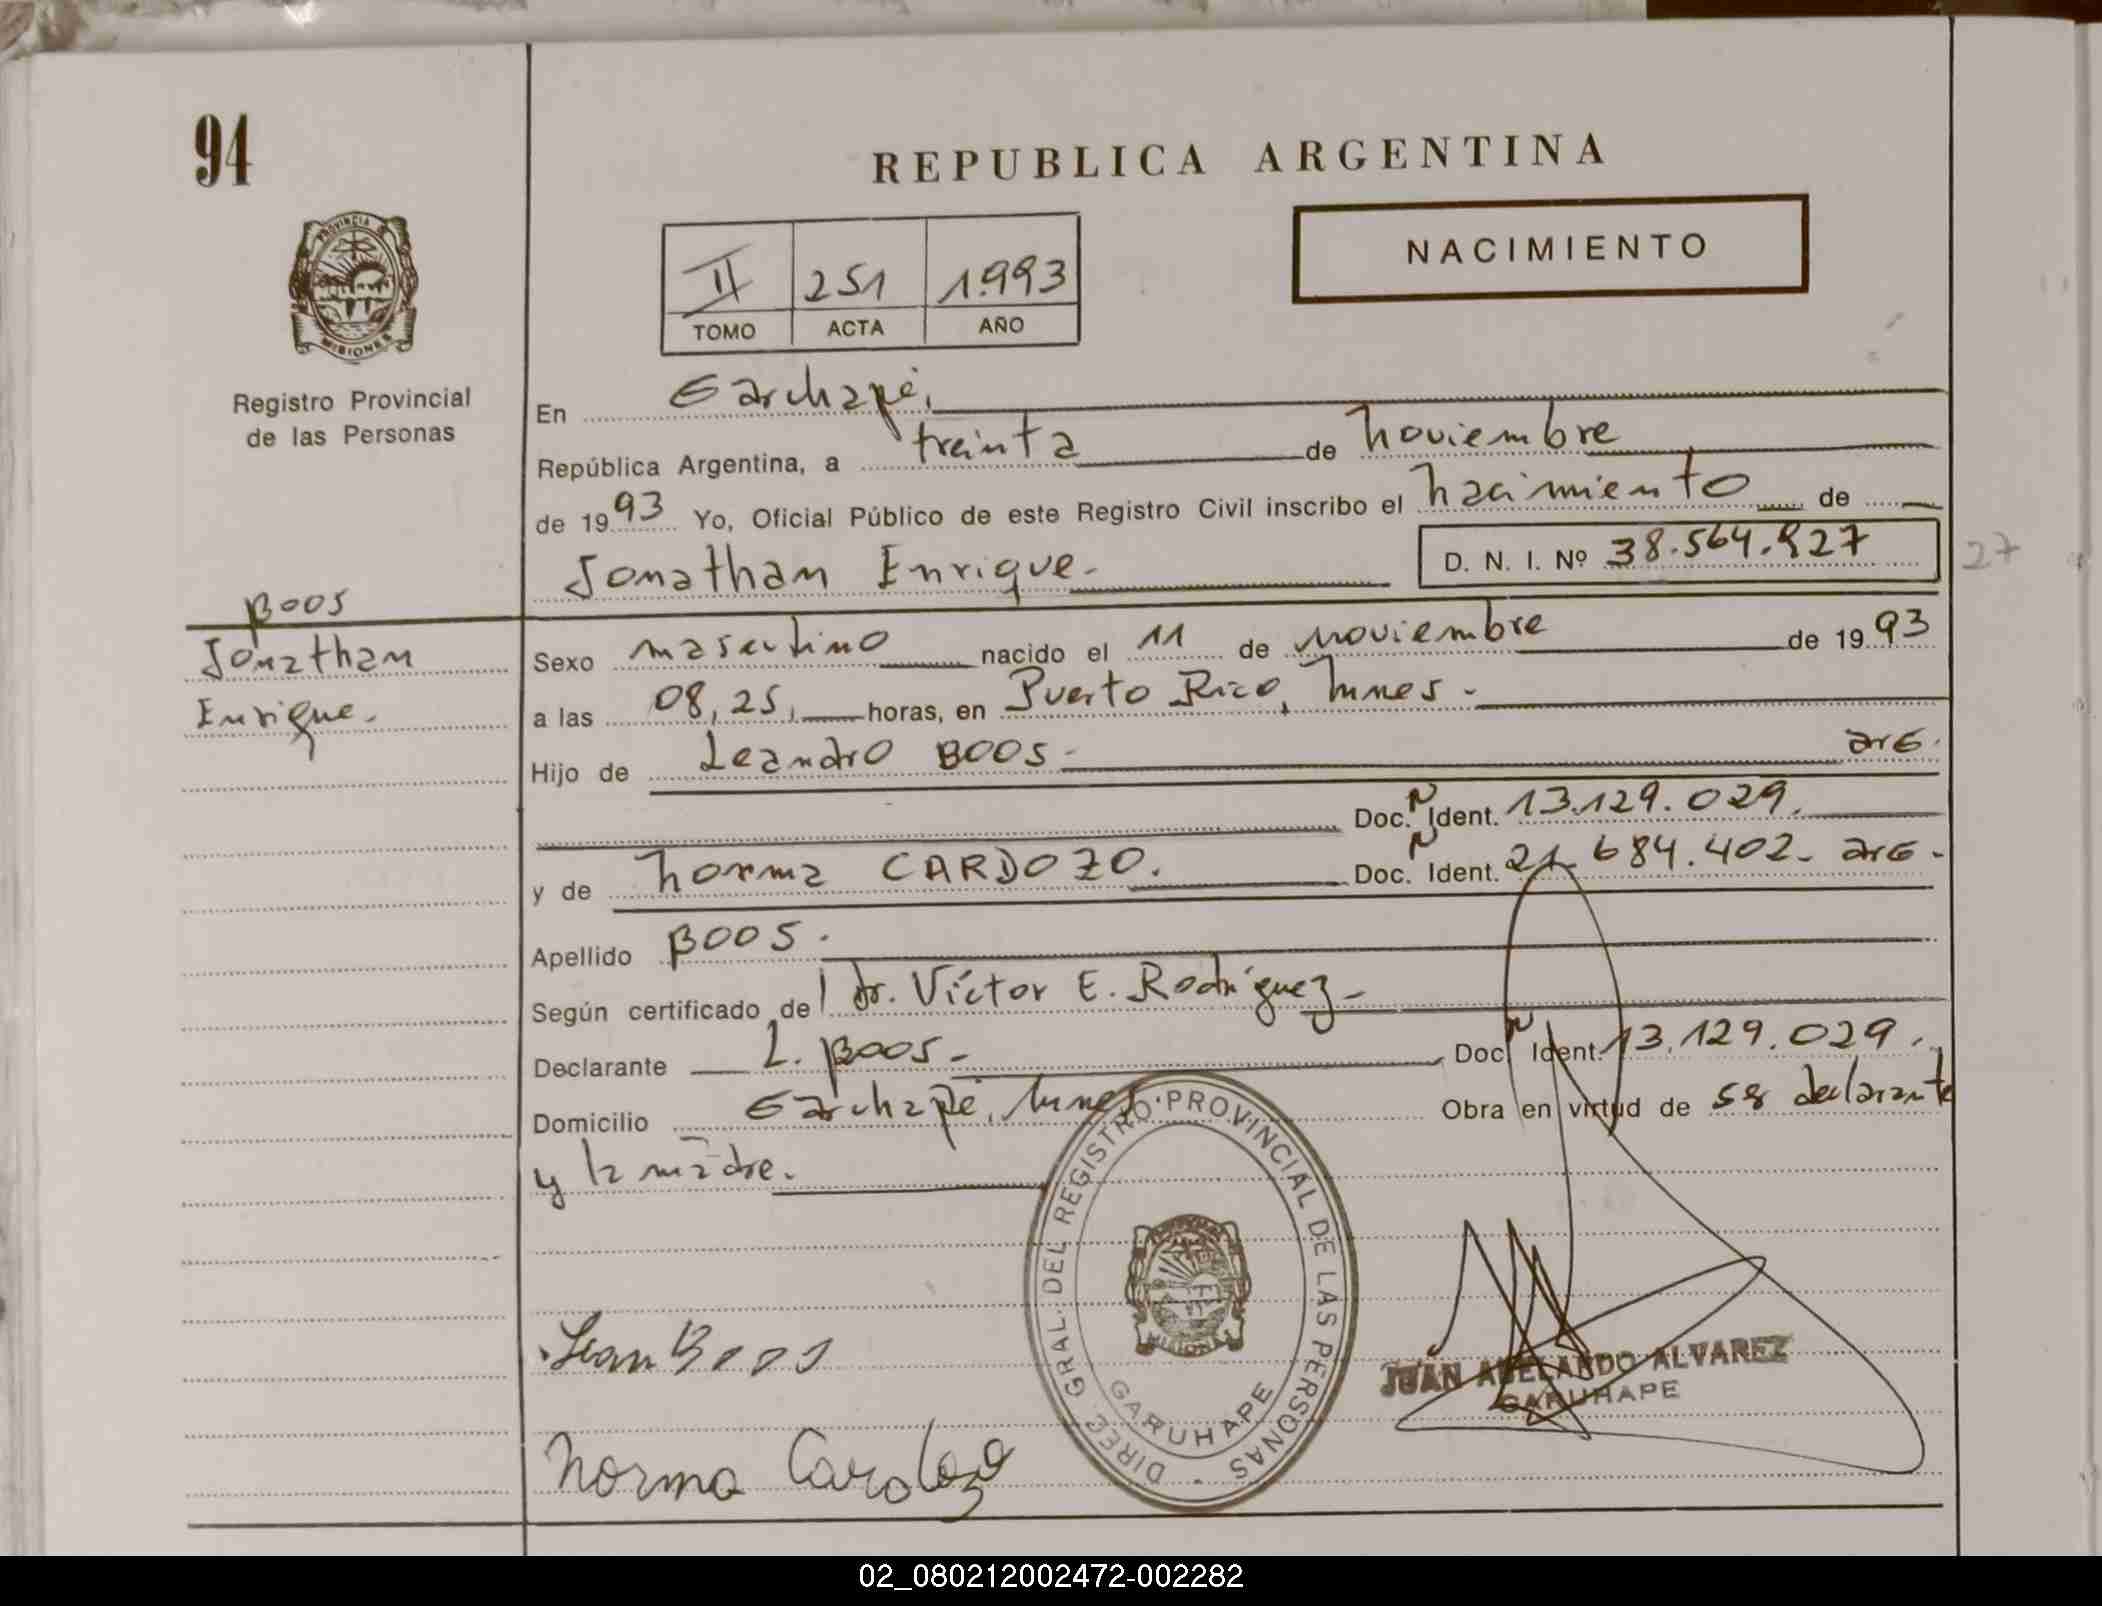 94
REPUBLICA ARGENTINA
NACIMIENTO
II 251 1.993
TOMO ACTA AÑO
PROVINCIA DE MISIONES
Registro Provincial
de las Personas
En Garuhapé,
República Argentina, a treinta de noviembre
de 1993 Yo, Oficial Público de este Registro Civil inscribo el nacimiento de
Jonathan Enrique.- D. N. I. Nº 38.564.827
27
BOOS
Jonathan
Enrique.
Sexo masculino nacido el 11 de noviembre de 1993
a las 08,25, horas, en Puerto Rico, Mnes.-
Hijo de Leandro BOOS- arg.
Doc. N Ident. 13.129.029.
y de Norma CARDOZO. Doc. N Ident. 21.684.402- arg.-
Apellido BOOS.
Según certificado de l dr. Víctor E. Rodríguez-
Declarante L. BOOS- Doc. N Ident. 13.129.029.
Domicilio Garuhapé, Mnes Obra en virtud de ser declarante
y la madre.
DIREC. GRAL. DEL REGISTRO PROVINCIAL DE LAS PERSONAS
MISIONES
GARUHAPE
Lean Boos
Norma Cardozo
JUAN ABELANDO ALVAREZ
GARUHAPE
02_080212002472-002282